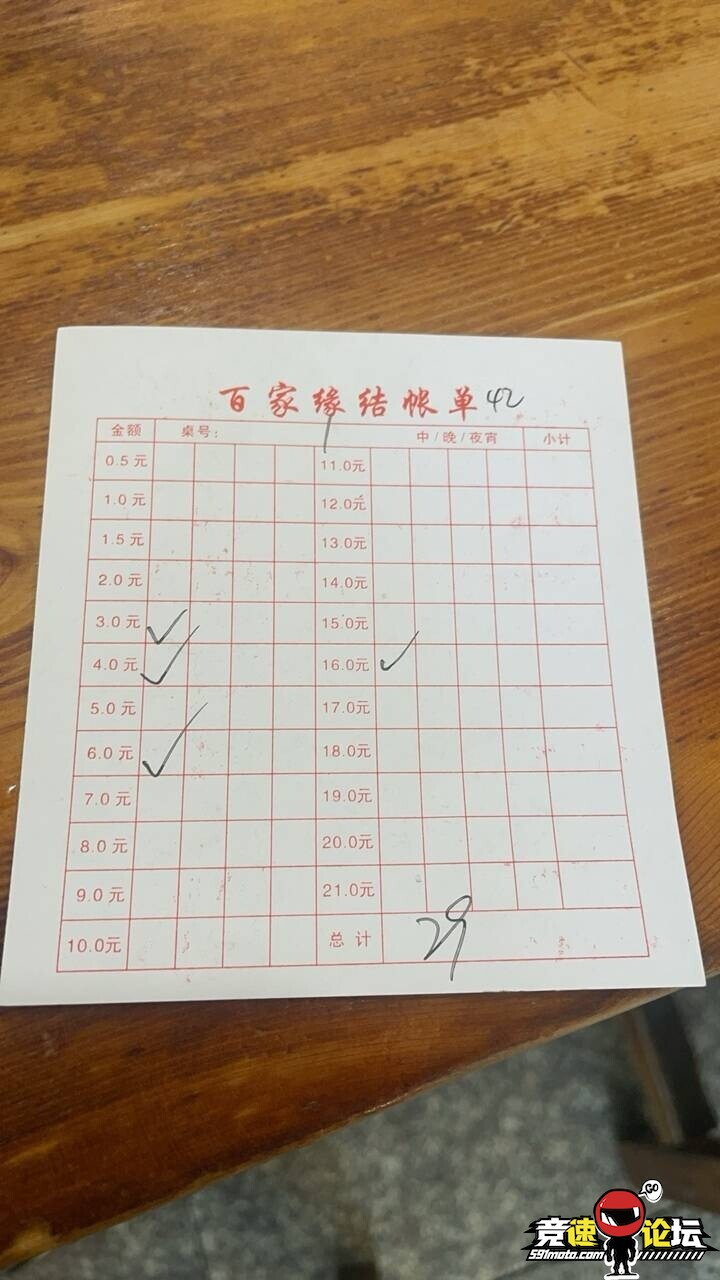 百家缘结帐单 42
金额 桌号: 1 中/晚/夜宵 小计
0.5元 11.0元
1.0元 12.0元
1.5元 13.0元
2.0元 14.0元
3.0元 ✓ 15.0元
4.0元 ✓ 16.0元 ✓
5.0元 17.0元
6.0元 ✓ 18.0元
7.0元 19.0元
8.0元 20.0元
9.0元 21.0元
10.0元 总计 29
GO
竞速论坛
591moto.com